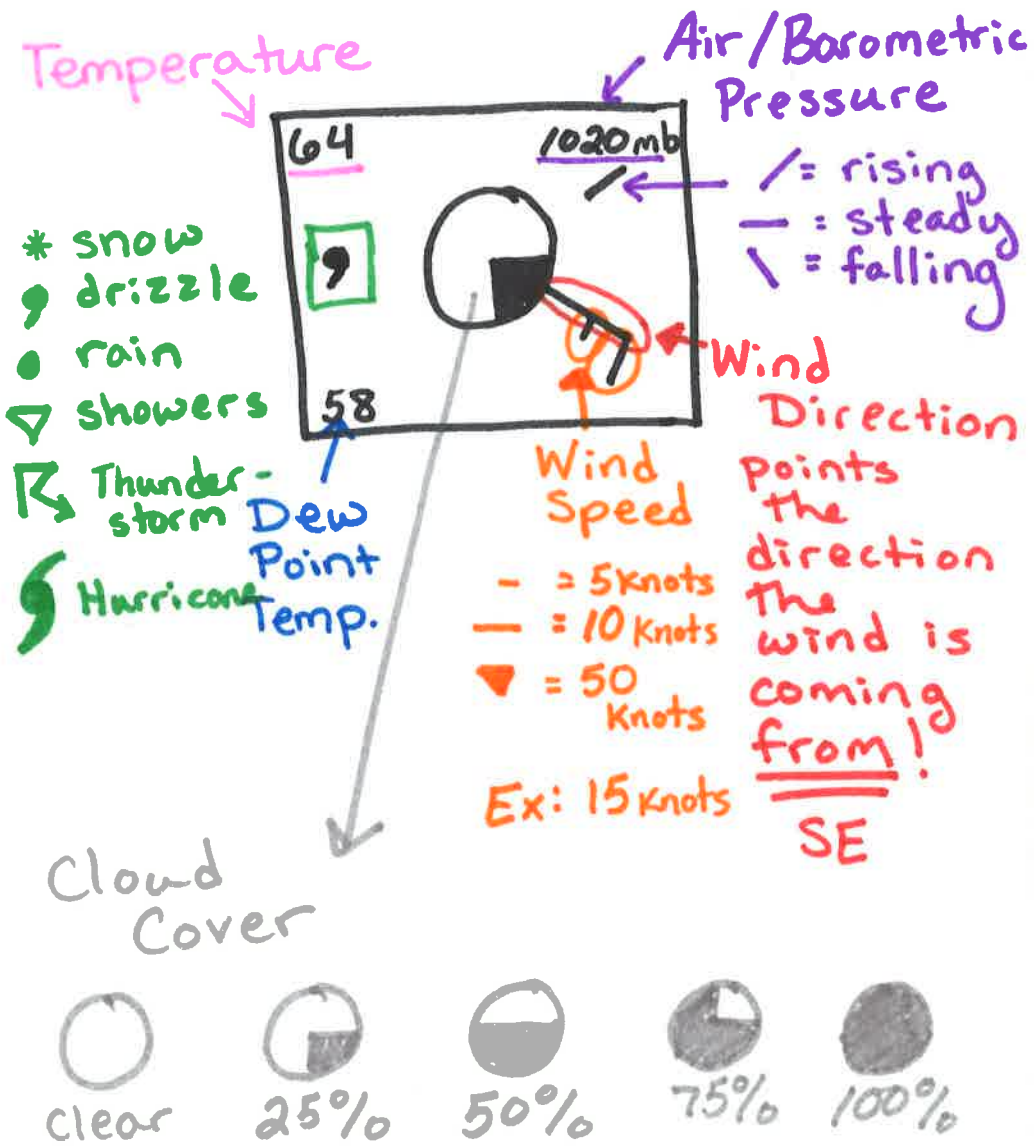 Temperature
Air/Barometric
Pressure
64
1020mb
/ = rising
— = steady
\ = falling
* snow
, drizzle
• rain
▽ showers
Thunder-
storm
Hurricane
,
58
Dew
Point
Temp.
Wind
Speed
- = 5 Knots
— = 10 Knots
▼ = 50
Knots
Ex: 15 Knots
Wind
Direction
points
the
direction
the
wind is
coming
from!
SE
Cloud
Cover
clear
25%
50%
75%
100%